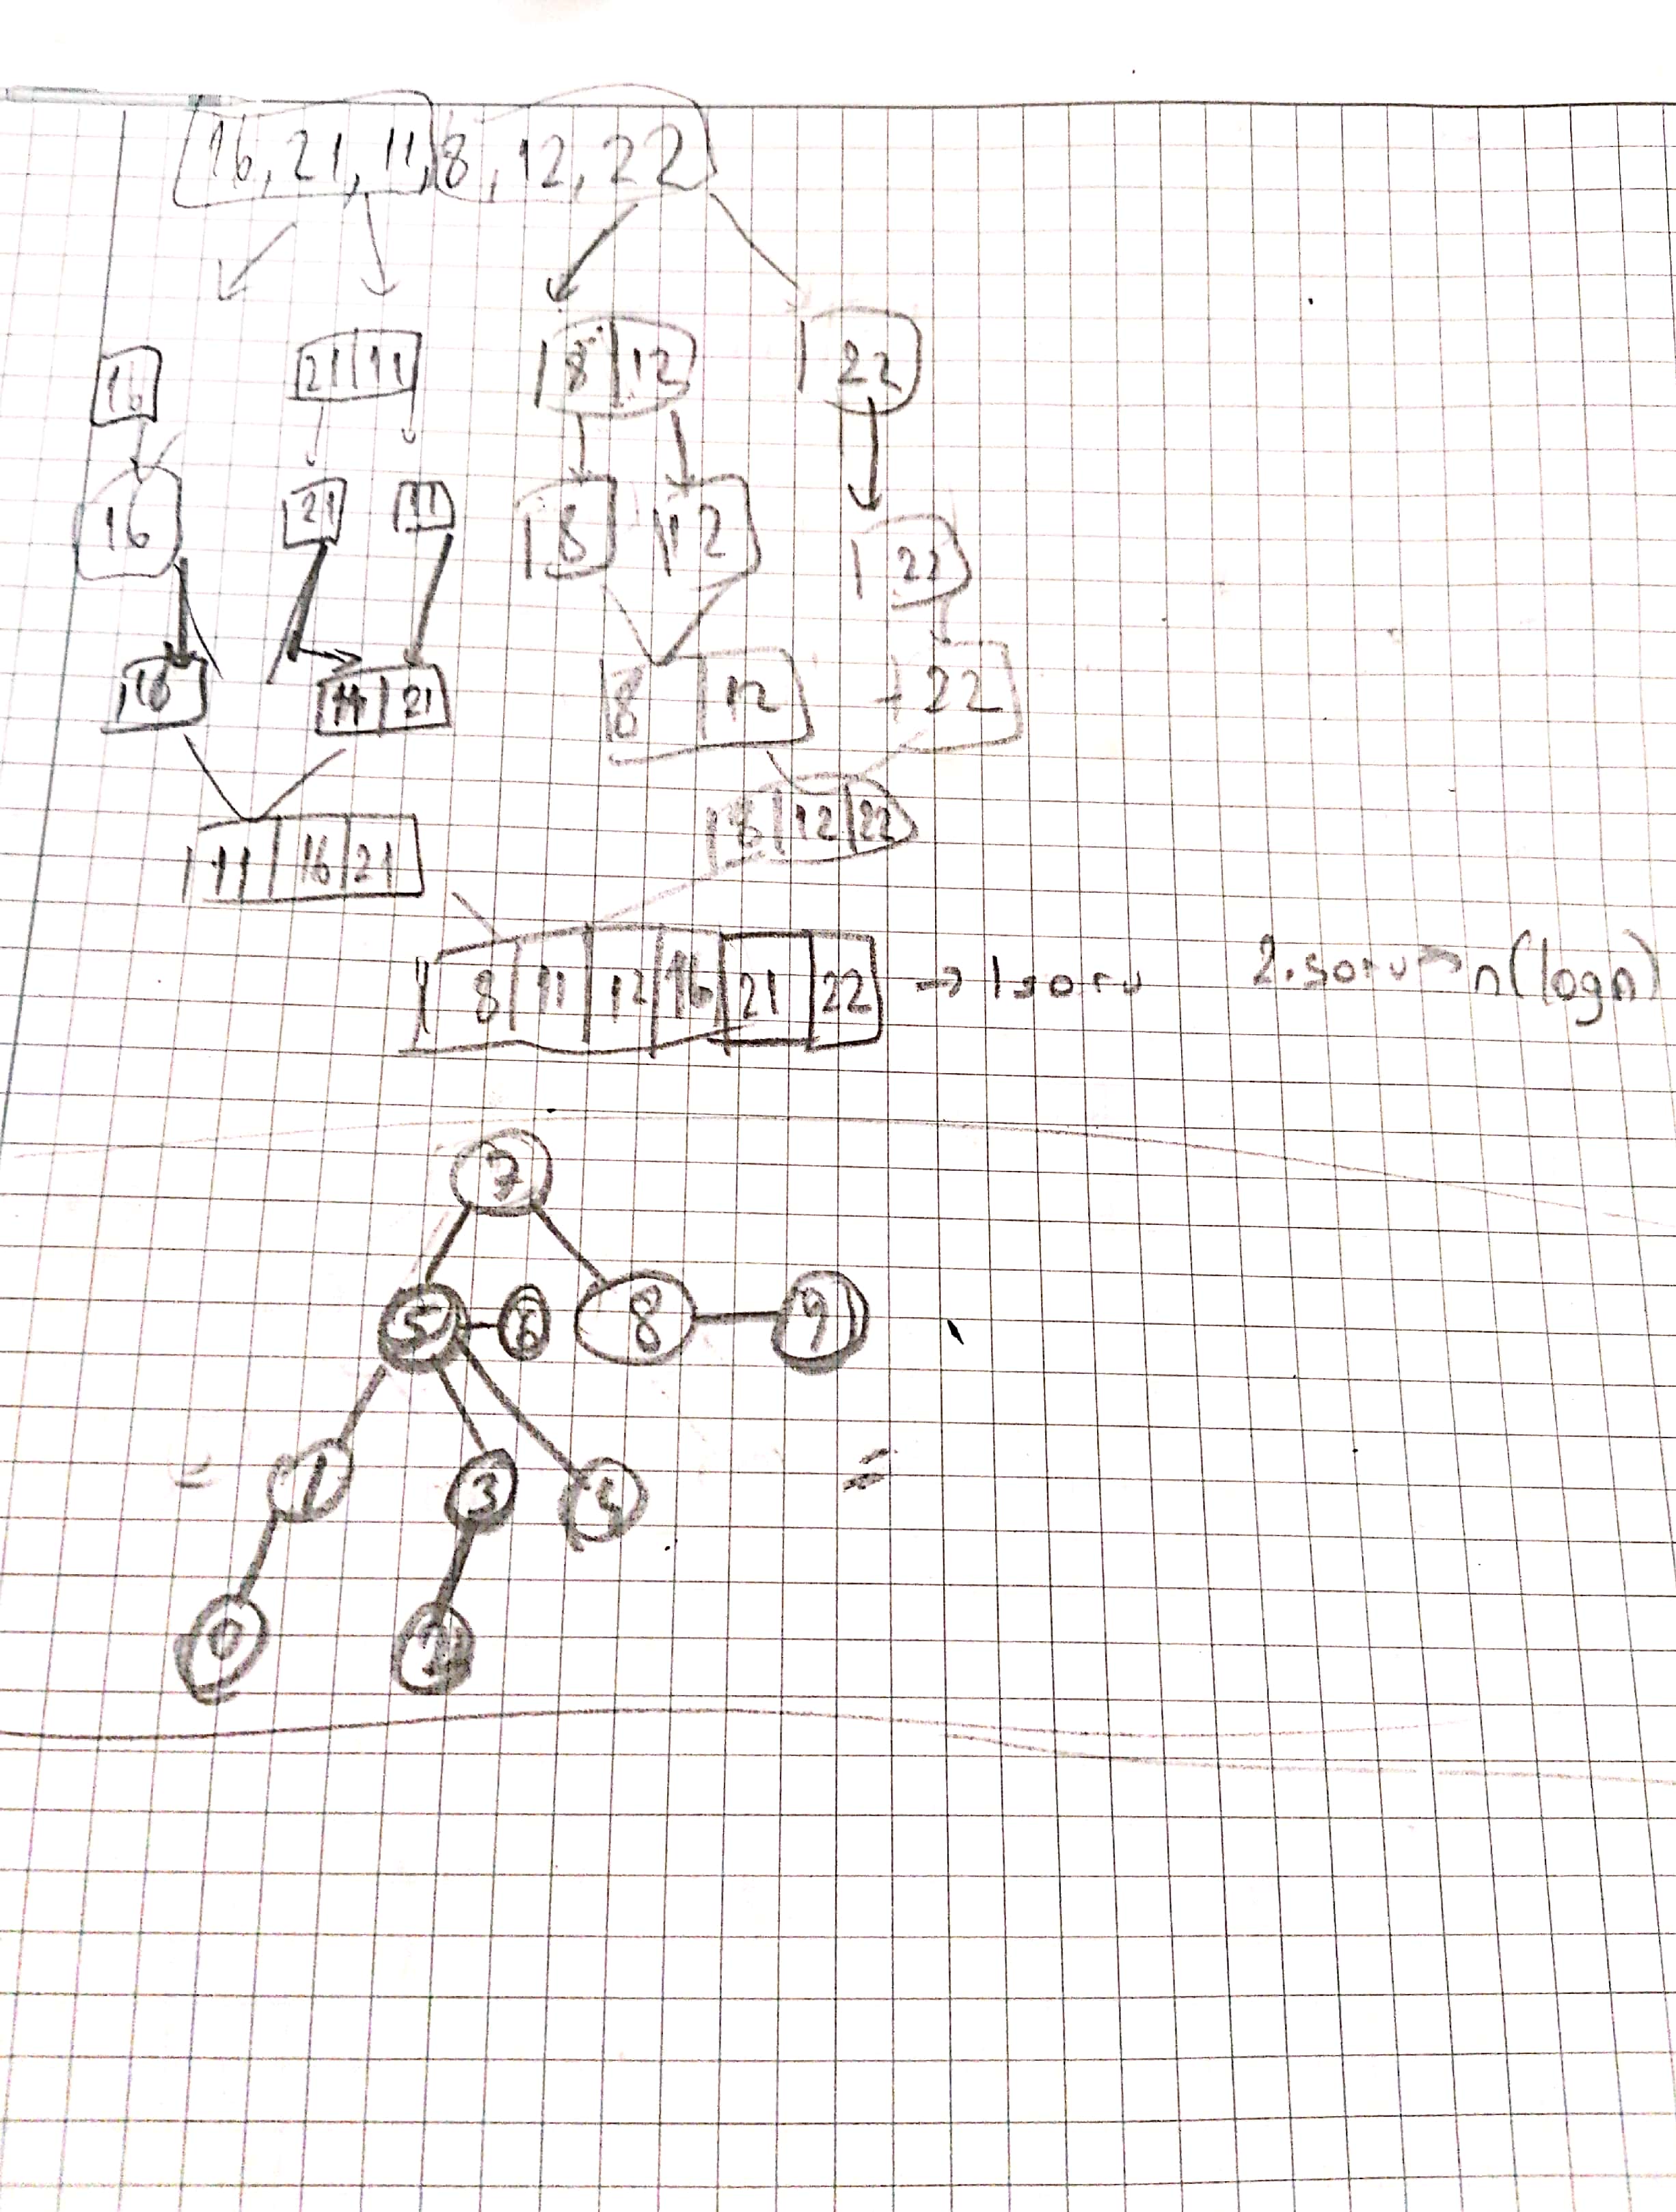 16, 21, 11, 8, 12, 22
16 21 11 8 12 22
16 21 11 8 12 22
16 11 21 8 12 22
11 16 21 8 12 22
8 11 12 16 21 22 → 1 soru 2. soru → n(logn)
7
5 6 8 9
1 3 4
0 2